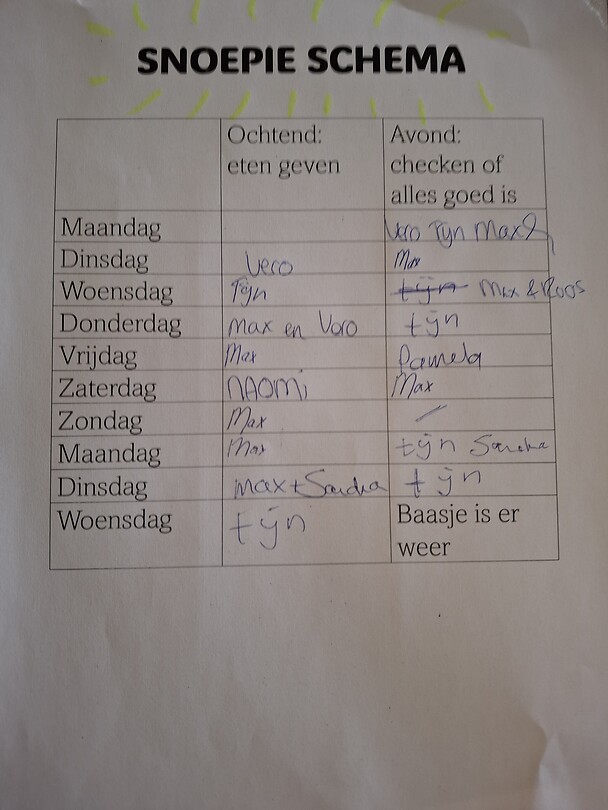 SNOEPIE SCHEMA
Ochtend: Avond:
eten geven checken of
alles goed is
Maandag Vero Tijn Max &
Dinsdag Vero Max
Woensdag Tijn tijn Max & Roos
Donderdag max en Vero tijn
Vrijdag Max Pamela
Zaterdag NAOMi Max
Zondag Max /
Maandag Max tijn Sandra
Dinsdag max + Sandra tijn
Woensdag tijn Baasje is er
weer